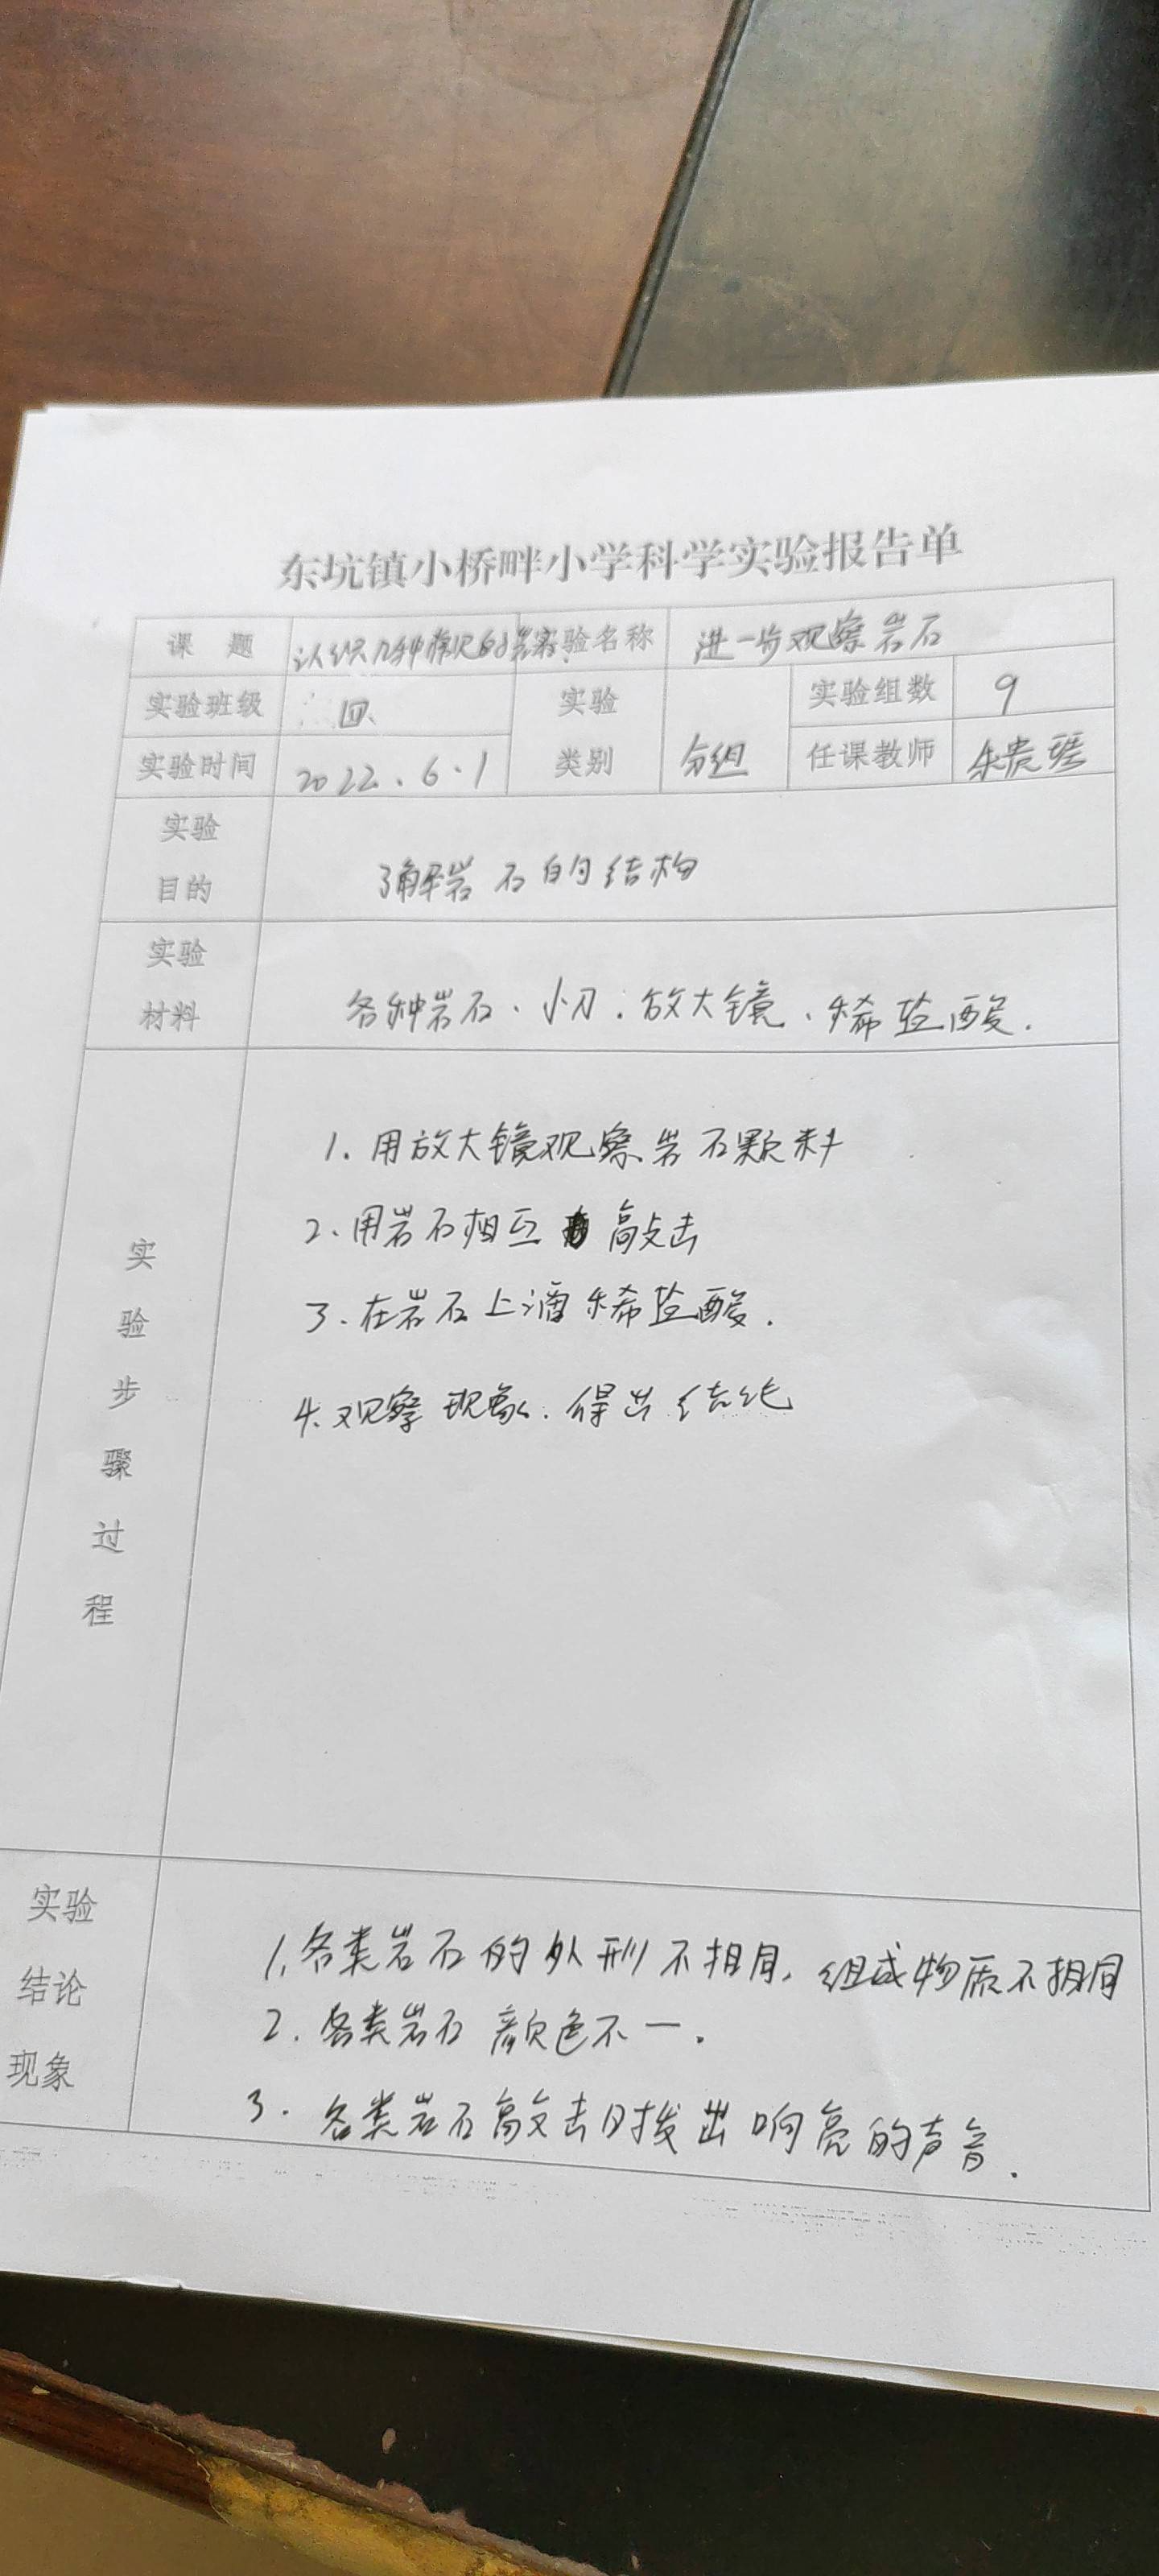 东坑镇小桥畔小学科学实验报告单
课 题 认识几种常见的岩 实验名称 进一步观察岩石
实验班级 四 实验 类别 分组 实验组数 9
实验时间 2022.6.1 任课教师
实验 目的 了解岩石的结构
实验 材料 各种岩石、小刀.放大镜、稀盐酸.
实验步骤过程
1.用放大镜观察岩石颗料
2、用岩石相互 敲击
3、在岩石上滴稀盐酸.
4、观察现象.得出结论
实验 结论 现象
1.各类岩石的外形不相同,组成物质不相同
2.各类岩石颜色不一.
3.各类岩石敲击时发出响亮的声音.